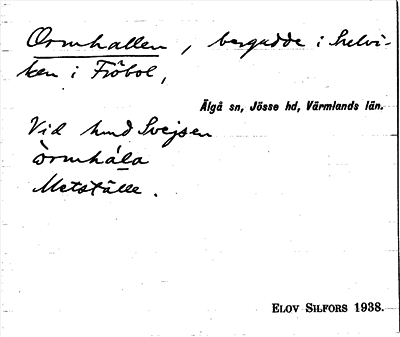 Ormhallen, bergudde i Selvi-
ken i Fröbol,
Älgå sn, Jösse hd, Värmlands län.
Vid Svejsen
ormhála
Metställe.
ELOV SILFORS 1938.